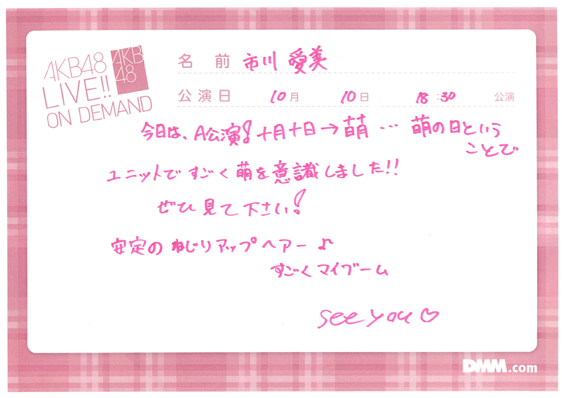 AKB48
LIVE!!
ON DEMAND
AKB
48
名 前 市川 愛美
公演日 10月 10日 18:30 公演
今日は、A公演! 十月十日→萌 … 萌の日という
ことで
ユニットですごく萌を意識しました!!
ぜひ見て下さい!
安定のねじりアップヘアー♪
すごくマイブーム
see you♡
DMM.com